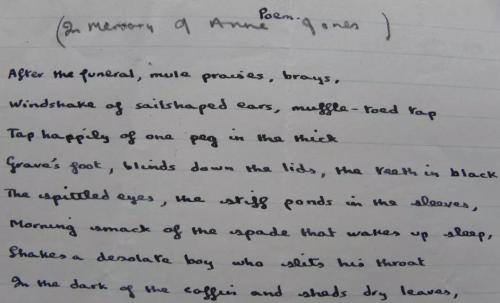 Poem.
(In Memory of Anne Jones)
After the funeral, mule praises, brays,
Windshake of sailshaped ears, muffle-toed tap
Tap happily of one peg in the thick
Grave's foot, blinds down the lids, the teeth in black
The spittled eyes, the stiff ponds in the sleeves,
Morning smack of the spade that wakes up sleep,
Shakes a desolate boy who slits his throat
In the dark of the coffin and sheds dry leaves,